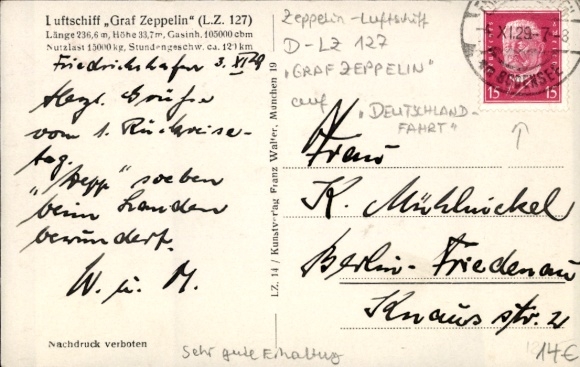 Luftschiff „Graf Zeppelin“ (L.Z. 127)
Länge 236,6 m, Höhe 33,7 m, Gasinh. 105000 cbm
Nutzlast 15000 kg, Stundengeschw. ca. 129 km
Friedrichshafen 3. XI 29
Herzl. Grüße
vom 1. Rückreise-
tag.
„Zepp“ soeben
beim Landen
bewundert.
W. u. M.
Nachdruck verboten
LZ. 14 / Kunstverlag Franz Walter, München 19
Zeppelin-Luftschiff
D-LZ 127
„GRAF ZEPPELIN“
auf
„DEUTSCHLAND-
FAHRT“
XI.29.-7-8
BODENSEE
15 15
Frau
K. Mühlnickel
Berlin-Friedenau
Knausstr. 2
Sehr gute Erhaltung
14€